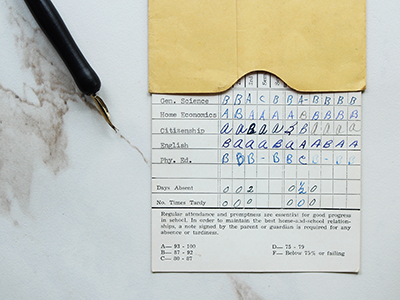 Gen. Science B B A C B B A- B B B B
Home Economics B A A A A A B B B B B
Citizenship
English B A A A A B A A B A A
Phy. Ed. B B B - B B C
Days Absent 0 0 2 0 0
No. Times Tardy 0 0 0 0 0 0
Regular attendance and promptness are essential for good progress
in school. In order to maintain the best home-and-school relation-
ships, a note signed by the parent or guardian is required for any
absence or tardiness.
A— 93 - 100 D— 75 - 79
B— 87 - 92 F— Below 75% or failing
C— 80 - 87